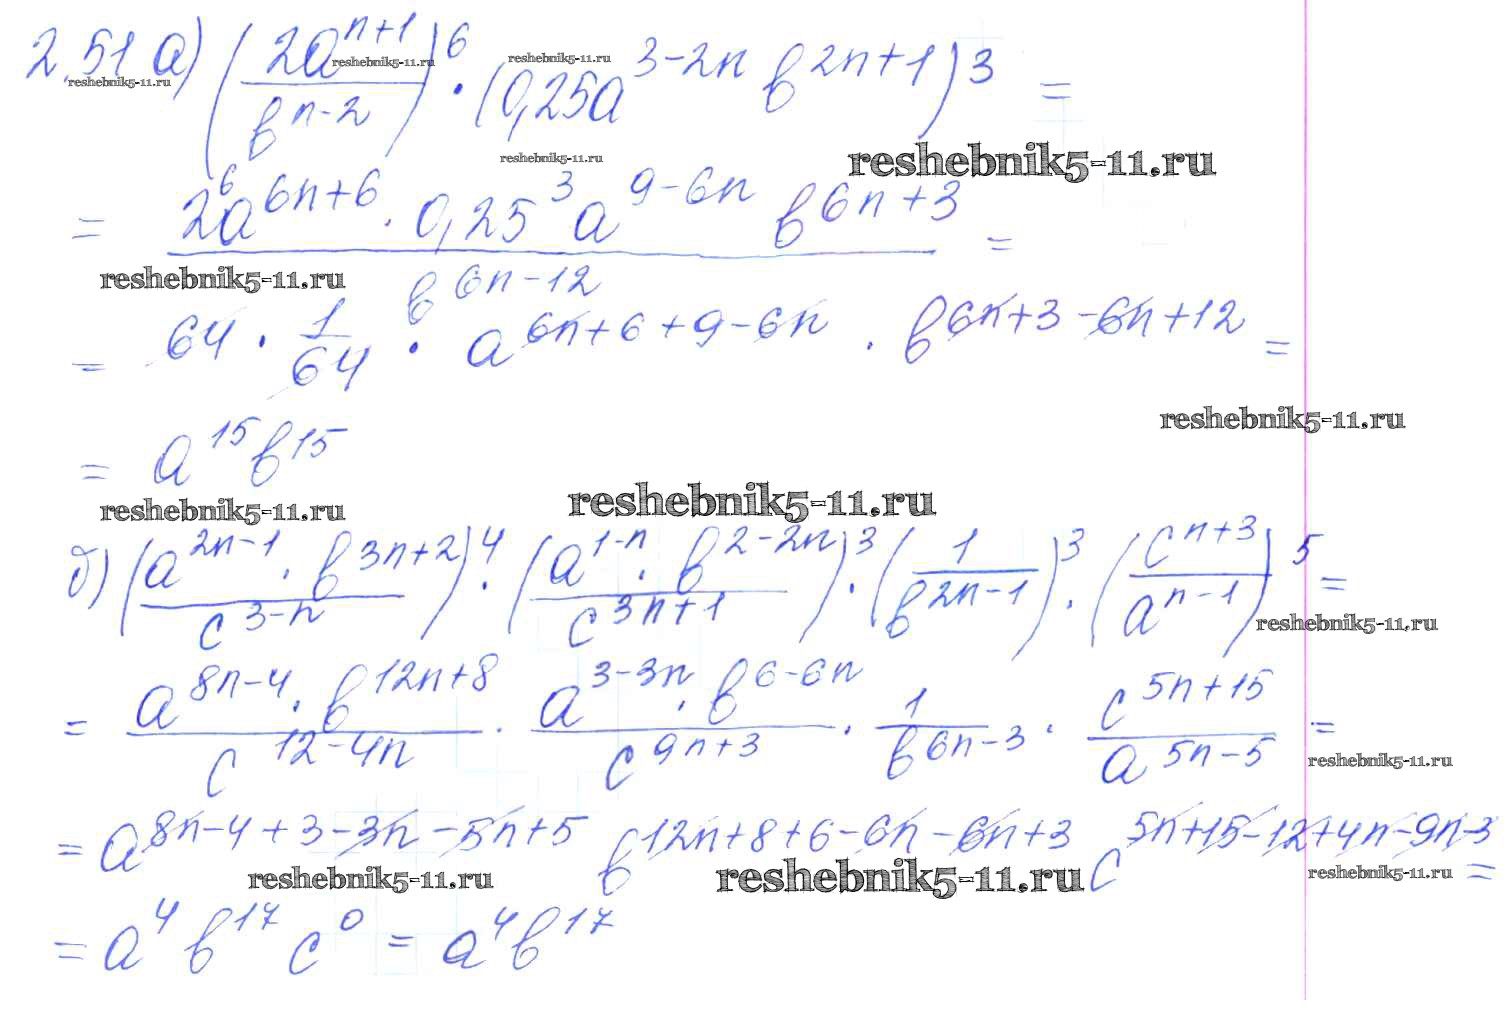 2.51 а) (2a^{n+1} / b^{n-2})^6 · (0,25a^{3-2n} b^{2n+1})^3 =
reshebnik5-11.ru reshebnik5-11.ru reshebnik5-11.ru
reshebnik5-11.ru reshebnik5-11.ru
= 2^6 a^{6n+6} · 0,25^3 a^{9-6n} b^{6n+3} / b^{6n-12} =
reshebnik5-11.ru
= 64 · 1/64 · a^{6n+6+9-6n} · b^{6n+3-6n+12} =
reshebnik5-11.ru
= a^{15} b^{15}
reshebnik5-11.ru reshebnik5-11.ru
б) (a^{2n-1} · b^{3n+2} / c^{3-n})^4 · (a^{1-n} · b^{2-2n} / c^{3n+1})^3 · (1 / b^{2n-1})^3 · (c^{n+3} / a^{n-1})^5 =
reshebnik5-11.ru
= a^{8n-4} · b^{12n+8} / c^{12-4n} · a^{3-3n} · b^{6-6n} / c^{9n+3} · 1 / b^{6n-3} · c^{5n+15} / a^{5n-5} =
reshebnik5-11.ru
= a^{8n-4+3-3n-5n+5} b^{12n+8+6-6n-6n+3} c^{5n+15-12+4n-9n-3} =
reshebnik5-11.ru reshebnik5-11.ru reshebnik5-11.ru
= a^4 b^{17} c^0 = a^4 b^{17}